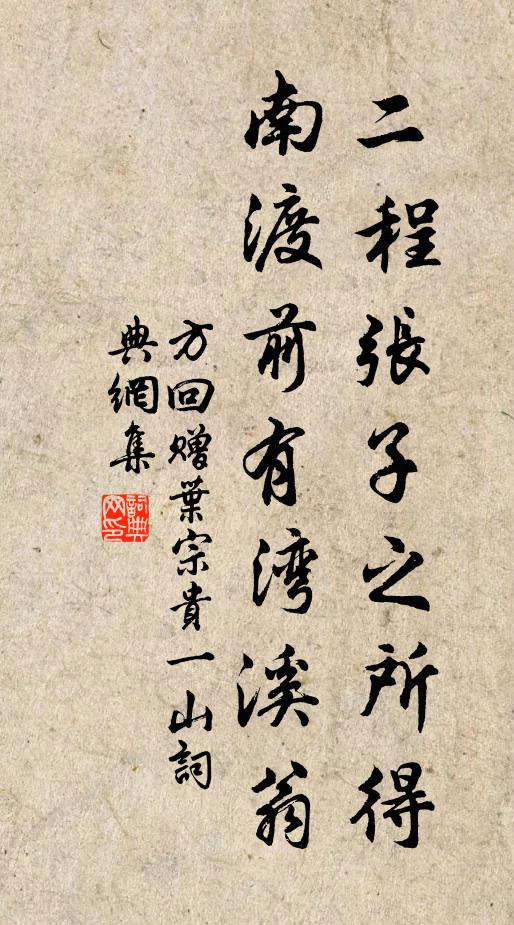 二程張子之所得
南渡前有湾溪翁
方回贈葉宗貴一山詞
典網集
詞典網印